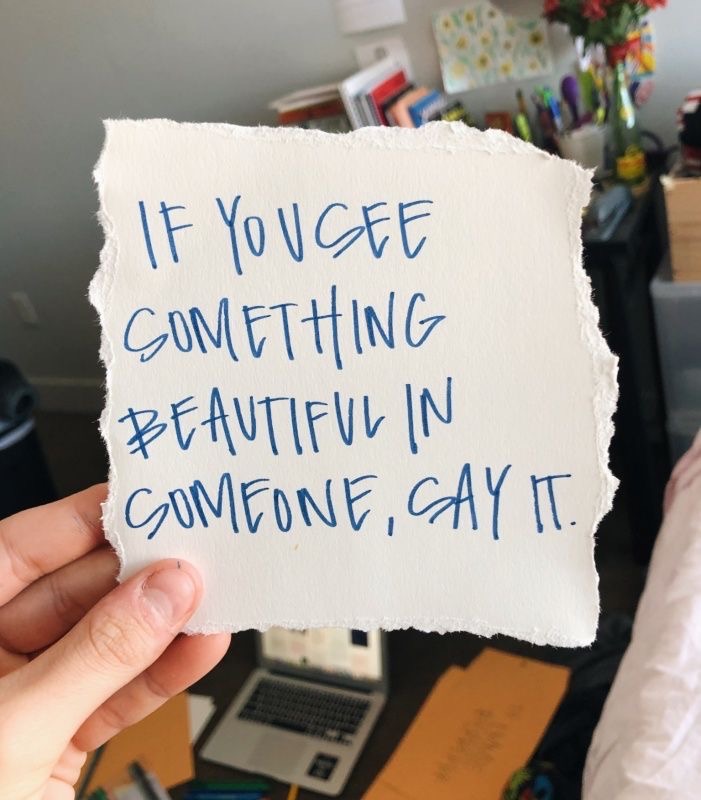 IF YOU SEE
SOMETHING
BEAUTIFUL IN
SOMEONE, SAY IT.